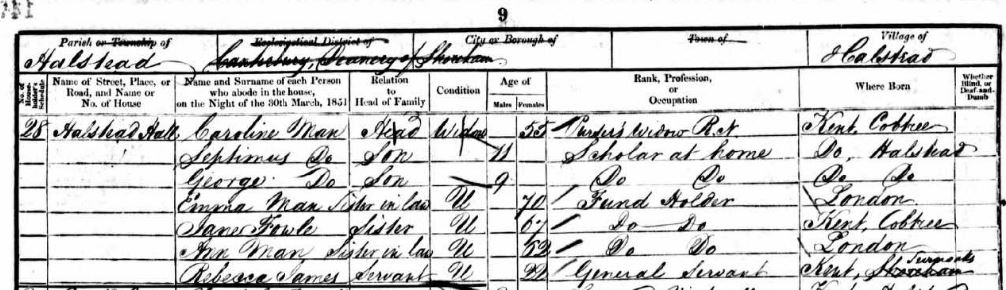 9
Parish or Township of Ecclesiastical District of City or Borough of Town of Village of
Halstead Canterbury, Deanery of Shoreham Halstead
No. of House-holder's Schedule Name of Street, Place, or Road, and Name or No. of House Name and Surname of each Person who abode in the house, on the Night of the 30th March, 1851 Relation to Head of Family Condition Age of Males Females Rank, Profession, or Occupation Where Born Whether Blind, or Deaf-and-Dumb
28 Halstead Hall Caroline Man Head Widow 55 Purser's Widow R.N. Kent, Cobtree
Septimus Do Son 11 Scholar at home Do. Halstead
George Do Son 9 Do Do Do Do
Emma Man Sister in law U 70 Fund Holder London
Jane Fowle Sister U 67 Do Do Kent, Cobtree
Ann Man Sister in law U 52 Do Do London
Rebecca James Servant U 22 General Servant Kent, Shoreham